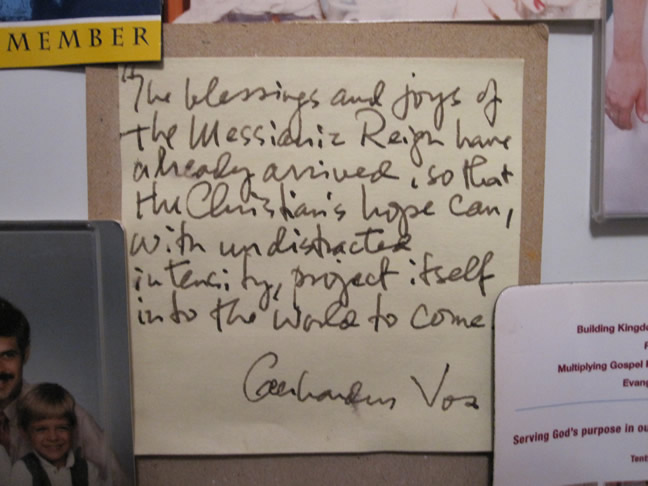 MEMBER
"The blessings and joys of
the Messianic Reign have
already arrived, so that
the Christian's hope can,
with undistracted
intensity, project itself
into the world to come.
Geerhardus Vos
Building Kingdo
F
Multiplying Gospel
Evang
Serving God's purpose in ou
Tent